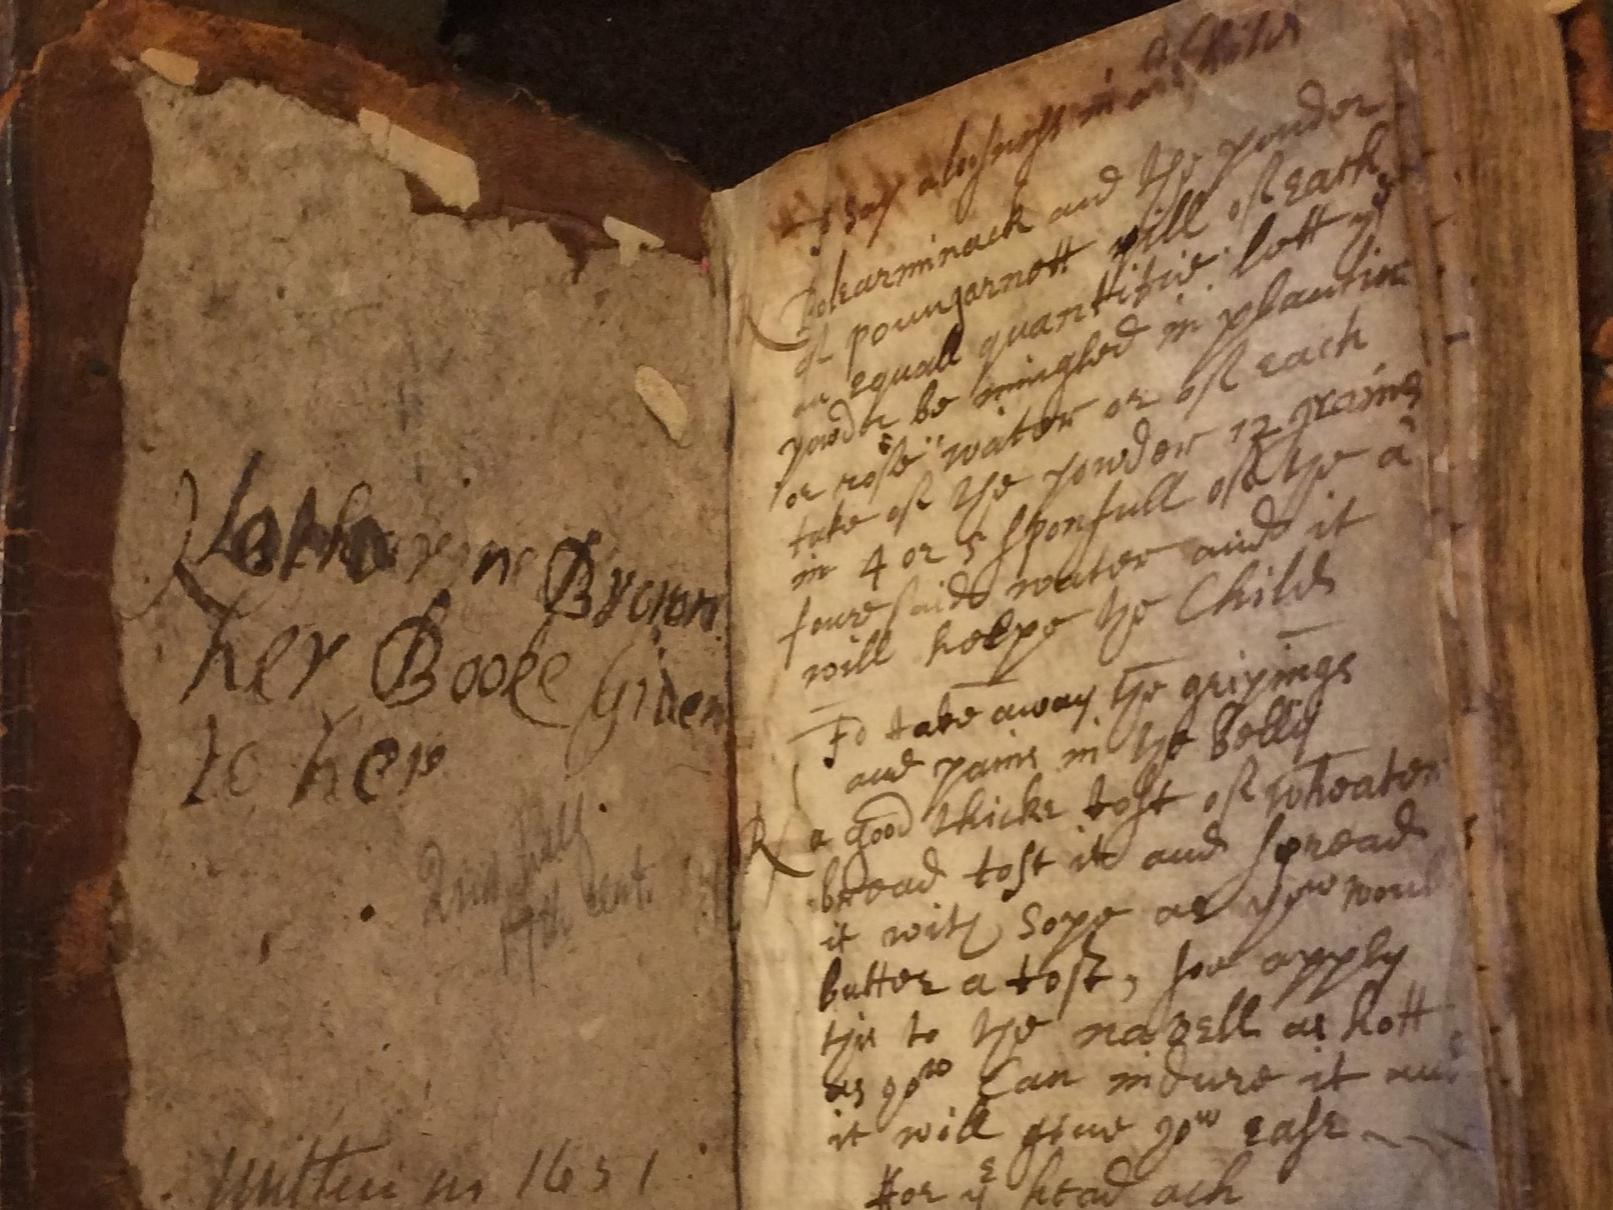 Katharine Brown
her Booke Giuen
to her
17th Cent.
Written in 1651
a Child
R Bolearminack and the powder
of poungarnett pill of each
an equall quantitie lett ye
powder be mingled in plantin
or rose water or of each
take of the powder 12 grains
in 4 or 5 sponfull of the a
foure said water and it
will helpe the Child
To take away the gripings
and pains in the belly
R a good thicke tost of wheaten
bread tost it and spread
it with Sope as yow woul
butter a tost, soe apply
this to the navell as hott
as yow Can indure it and
it will giue yow ease
For ye head ach